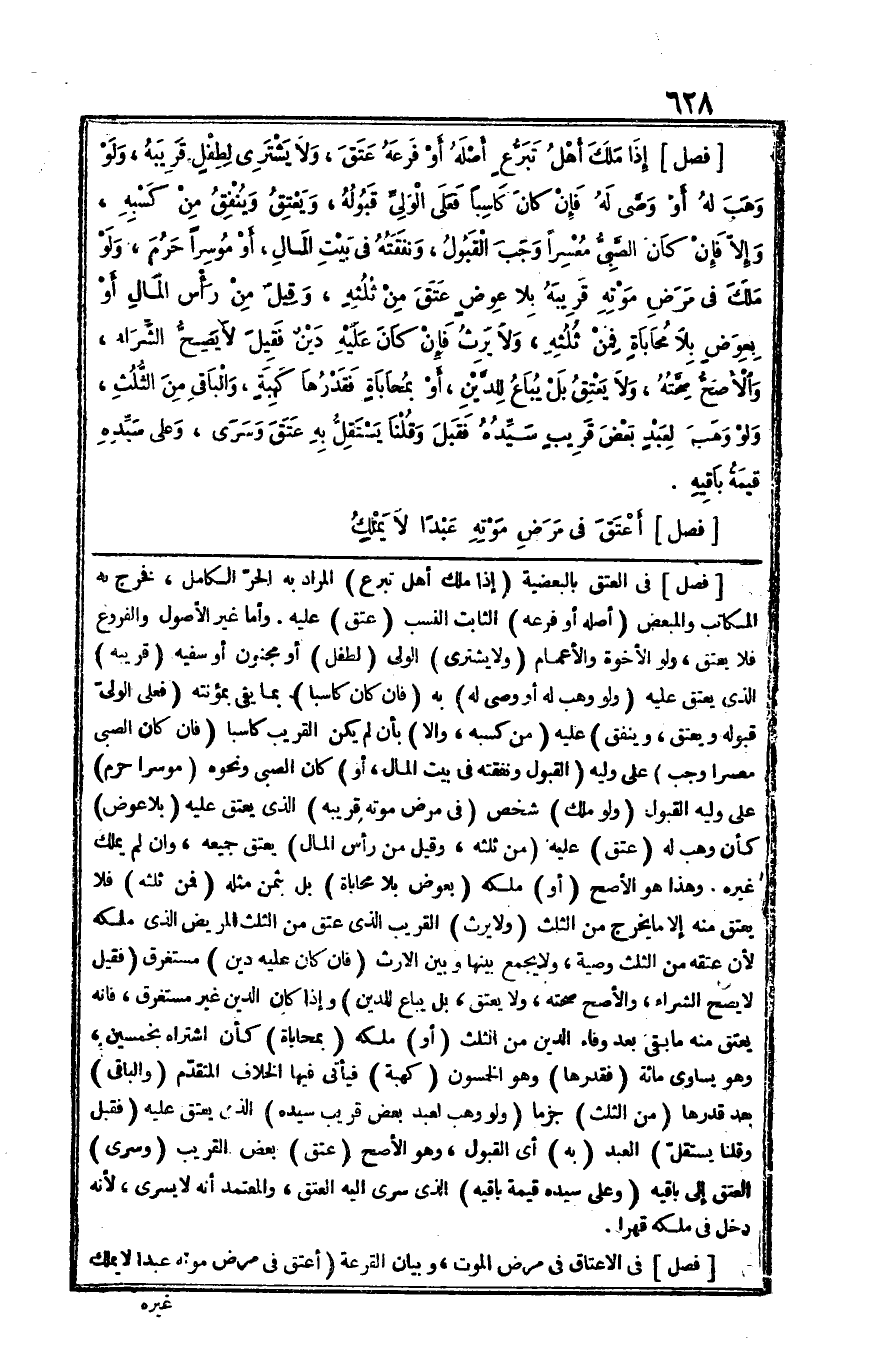 ٦٢٨
[ فصل ] إِذَا مَلَكَ أَهْلُ تَبَرُّعٍ أَصْلَهُ أَوْ فَرْعَهُ عَتَقَ ، وَلاَ يَشْتَرِى لِطِفْلٍ قَرِيبَهُ ، وَلَوْ
وَهَبَ لَهُ أَوْ وَصَّى لَهُ فَإِنْ كَانَ كَاسِباً فَعَلَى الْوَلِىِّ قَبُولُهُ ، وَيَعْتِقُ وَيُنْفِقُ مِنْ كَسْبِهِ ،
وَإِلاَّ فَإِنْ كَانَ الصَّبِىُّ مُعْسِراً وَجَبَ الْقَبُولُ ، وَنَفَقَتُهُ فى بَيْتِ الْمَـالِ ، أَوْ مُوسِراً حَرُمَ ، وَلَوْ
مَلَكَ فى مَرَضِ مَوْتِهِ قَرِيبَهُ بِلا عِوضٍ عَتَقَ مِنْ ثُلُثِهِ ، وَقِيلَ مِنْ رَأْسِ الْمَـالِ أَوْ
بِعِوَضٍ بِلاَ مُحَابَاةٍ فَمِنْ ثُلُثِهِ ، وَلاَ يَرِثُ فَإِنْ كَانَ عَلَيْهِ دَيْنٌ فَقِيلَ لاَ يَصِحُّ الشِّرَاء ،
وَالْأَصَحُّ صِحَّتُهُ ، وَلاَ يَعْتِقُ بَلْ يُبَاعُ لِلدَّيْنِ ، أَوْ بِمُحَابَاةٍ فَقَدْرُهَا كَهِبَةٍ ، وَالْبَاقى مِنَ الثُّلُثِ ،
وَلَوْ وَهَبَ لِعَبْدٍ بَعْضَ قَرِيبِ سَـيِّدِهُ فَقَبِلَ وَقُلْنَا يَسْتَقِلُّ بِهِ عَتَقَ وَسَرَى ، وَعلى سَيِّدِهِ
قِيمَةُ بَاقِيهِ .
[ فصل ] أَعْتَقَ فى مَرَضِ مَوْتِهِ عَبْدًا لاَ يَمْلِكُ
[ فصل ] فى العتق بالبعضية ( إذا ملك أهل تبرع ) المراد به الحرّ الـكامل ، فخرج به
المـكاتب والمبعض ( أصله أو فرعه ) الثابت النسب ( عتق ) عليه . وأما غير الأصول والفروع
فلا يعتق ، ولو الأخوة والأعمـام ( ولايشترى ) الولى ( لطفل ) أو مجنون أو سفيه ( قريبه )
الذى يعتق عليه ( ولو وهب له أو وصى له ) به ( فان كان كاسبا ) بمـا يفى بمؤنته ( فعلى الولىّ
قبوله ويعتق ، وينفق ) عليه ( من كسبه ، والا ) بأن لم يكن القريب كاسبا ( فان كان الصبى
معسرا وجب ) على وليه ( القبول ونفقته فى بيت المـال ، أو ) كان الصبى ونحوه ( موسرا حرم )
على وليه القبول ( ولو ملك ) شخص ( فى مرض موته قريبه ) الذى يعتق عليه ( بلاعوض )
كـأن وهب له ( عتق ) عليه ( من ثلثه ، وقيل من رأس المـال ) يعتق جميعه ، وان لم يملك
غيره . وهذا هو الأصح ( أو ) ملـكه ( بعوض بلا محاباة ) بل بثمن مثله ( فمن ثلثه ) فلا
يعتق منه إلا مايخرج من الثلث ( ولايرث ) القريب الذى عتق من الثلث المريض الذى ملـكه
لأن عتقه من الثلث وصية ، ولايجمع بينها وبين الارث ( فان كان عليه دين ) مستغرق ( فقيل
لايصح الشراء ، والأصح صحته ، ولا يعتق ، بل يباع للدين ) وإذا كان الدين غير مستغرق ، فانه
يعتق منه مابقى بعد وفاء الدين من الثلث ( أو ) ملـكه ( بمحاباة ) كـأن اشتراه بخمسين ،
وهو يساوى مائة ( فقدرها ) وهو الخمسون ( كهبة ) فيأتى فيها الخلاف المتقدّم ( والباقى )
بعد قدرها ( من الثلث ) جزما ( ولو وهب لعبد بعض قريب سيده ) الذى يعتق عليه ( فقبل
وقلنا يستقلّ ) العبد ( به ) أى القبول ، وهو الأصح ( عتق ) بعض القريب ( وسرى )
العتق إلى باقيه ( وعلى سيده قيمة باقيه ) الذى سرى اليه العتق ، والمعتمد أنه لايسرى ، لأنه
دخل فى ملـكه قهرا .
[ فصل ] فى الاعتاق فى مرض الموت ، وبيان القرعة ( أعتق فى مرض موته عبدا لايملك
غيره